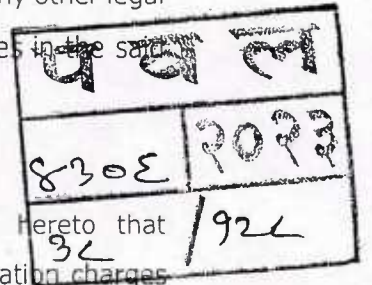 ny other legal
es in the said
प व ल
४३०६ २०१३
hereto that
३८ / १२८
ation charges